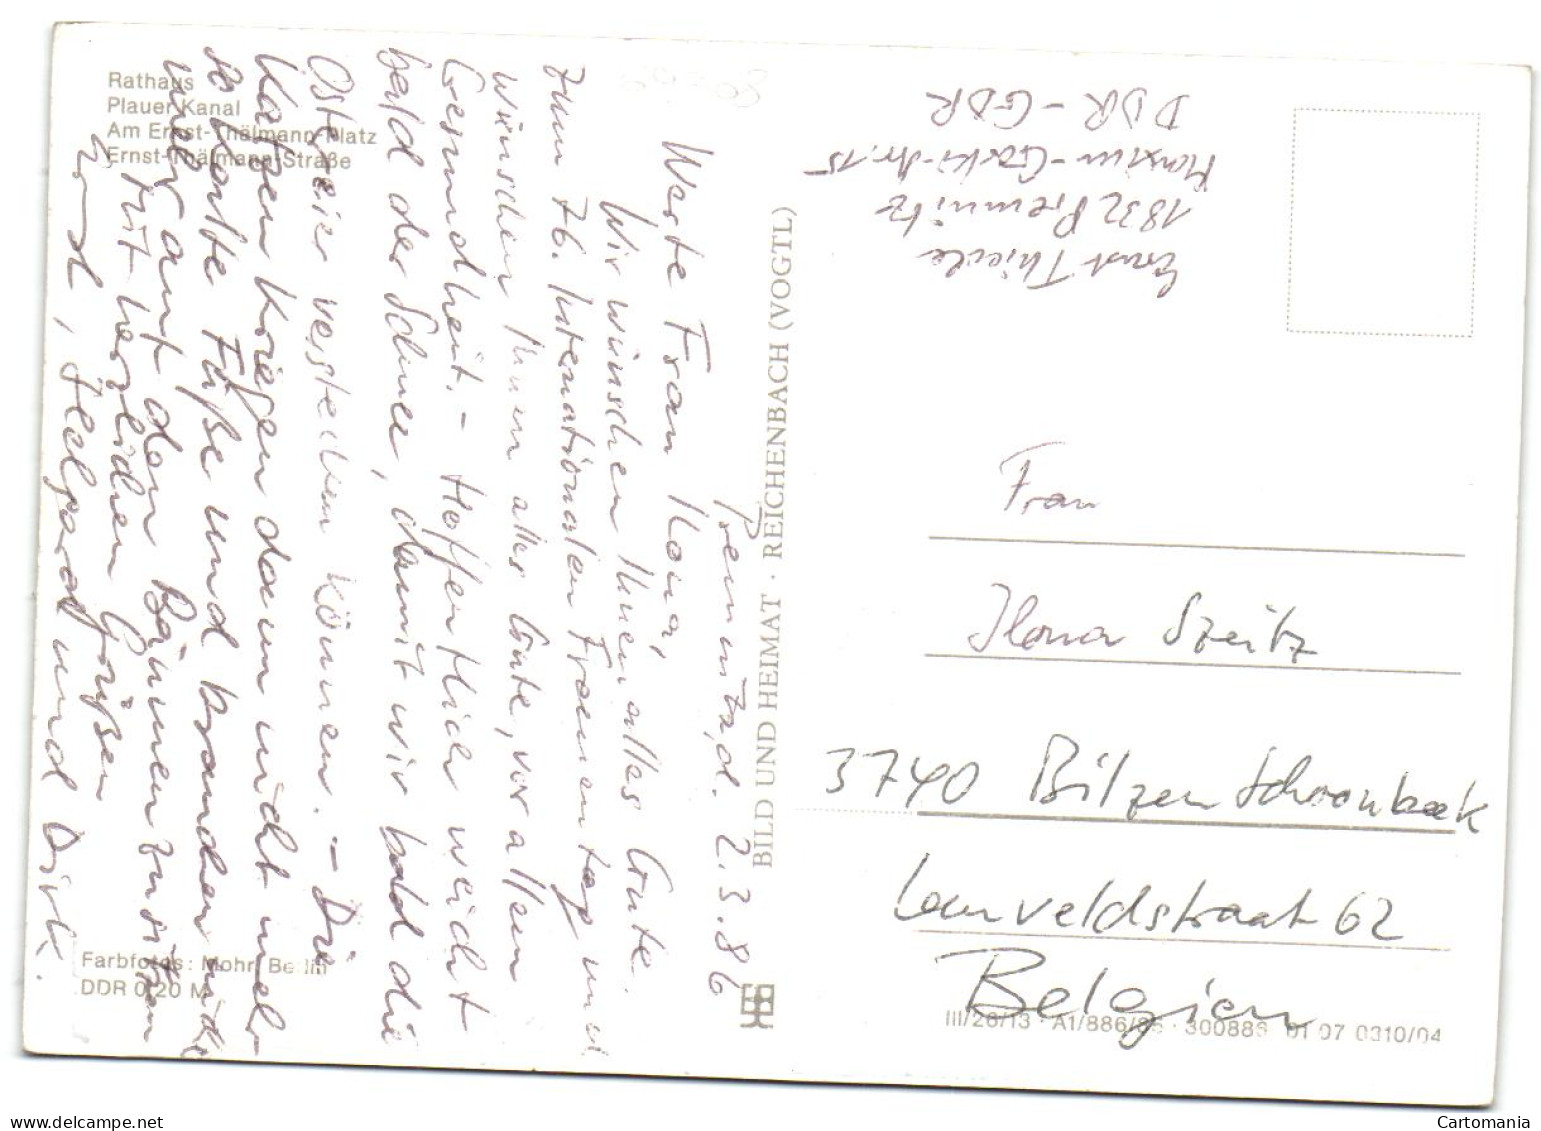 Rathaus
Plauer Kanal
Am Ernst-Thälmann-Platz
Ernst-Thälmann-Straße
Premnitz, d. 2.3.86
Werte Frau Ilona,
Wir wünschen Ihnen alles Gute
zum 76. Internationalen Frauentag und
wünschen Ihnen alles Gute, vor allem
Gesundheit. – Hoffentlich weicht
bald der Schnee, damit wir bald die
Ostereier verstecken können. – Die
Katzen kriegen dann nicht mehr
so kalte Füße und brauchen nicht
mehr auf den Bäumen zu sitzen
Mit herzlichen Grüßen
Ernst, Helgard und Dirk.
Farbfotos: Mohr, Berlin
DDR 0,20 M
BILD UND HEIMAT · REICHENBACH (VOGTL)
Ernst Thiede
1832 Premnitz
Maxim-Gorki-Str. 15
DDR – GDR
Frau
Ilona Szeitz
3740 Bilzen Schoonbeek
veldstraat 62
Belgien
III/26/13 · A1/886/86 · 300886 01 07 0310/04
delcampe.net
Cartomania